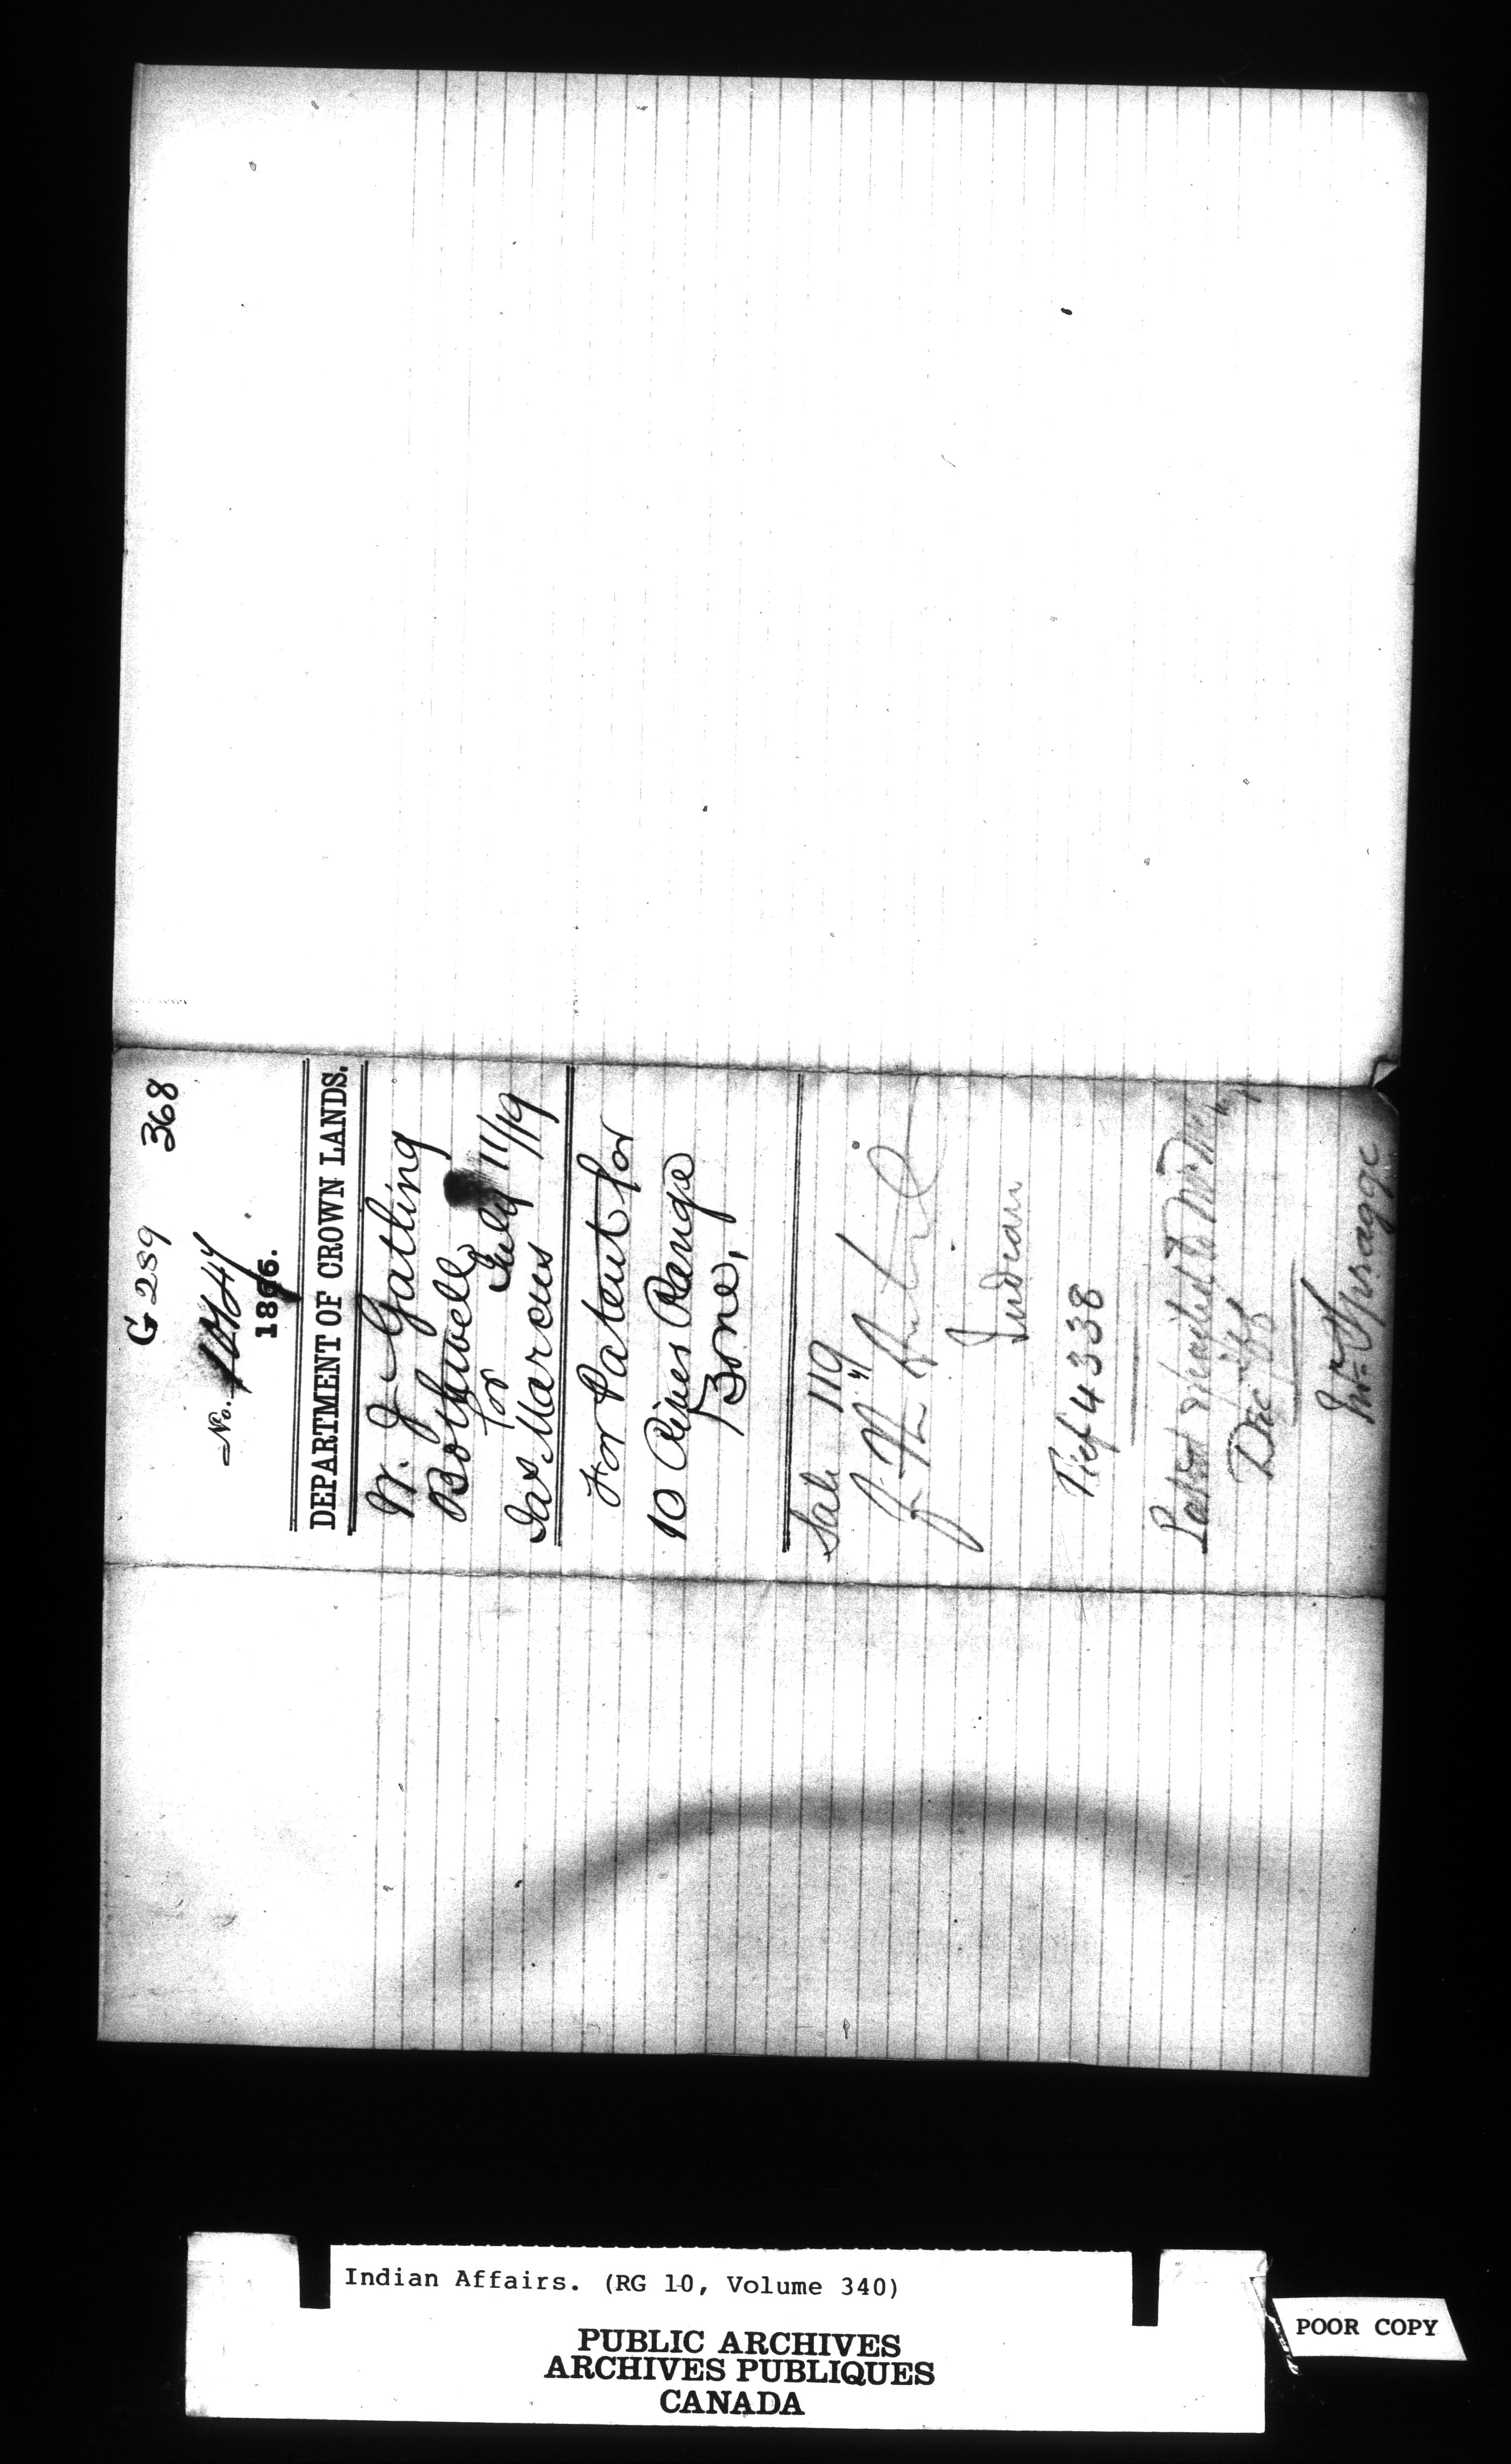 G 239 368
No.
1866.
DEPARTMENT OF CROWN LANDS.
W. J. Gatling
Bothwell
for July 11/19
Jas Marcus
For Patent for
10 River Range
Zone,
Sale 119
Indian
Ref 4338
Patent
Dec
Mr Spragge
Indian Affairs. (RG 10, Volume 340)
PUBLIC ARCHIVES
ARCHIVES PUBLIQUES
CANADA
POOR COPY